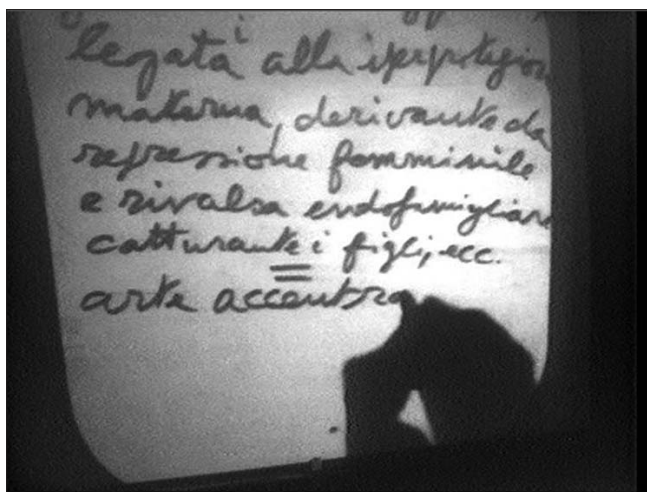 legata alla iperprotezion
materna, derivante da
repressione femminile
e rivalsa endofamigliare
catturante i figli, ecc.
=
arte accentra